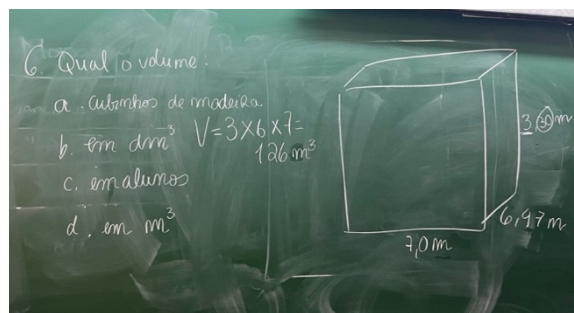 6. Qual o volume:
a. cubinhos de madeira.
b. em dm³
V=3×6×7=
126m³
c. em alunos
d. em m³
3,30 m
6,97m
7,0m